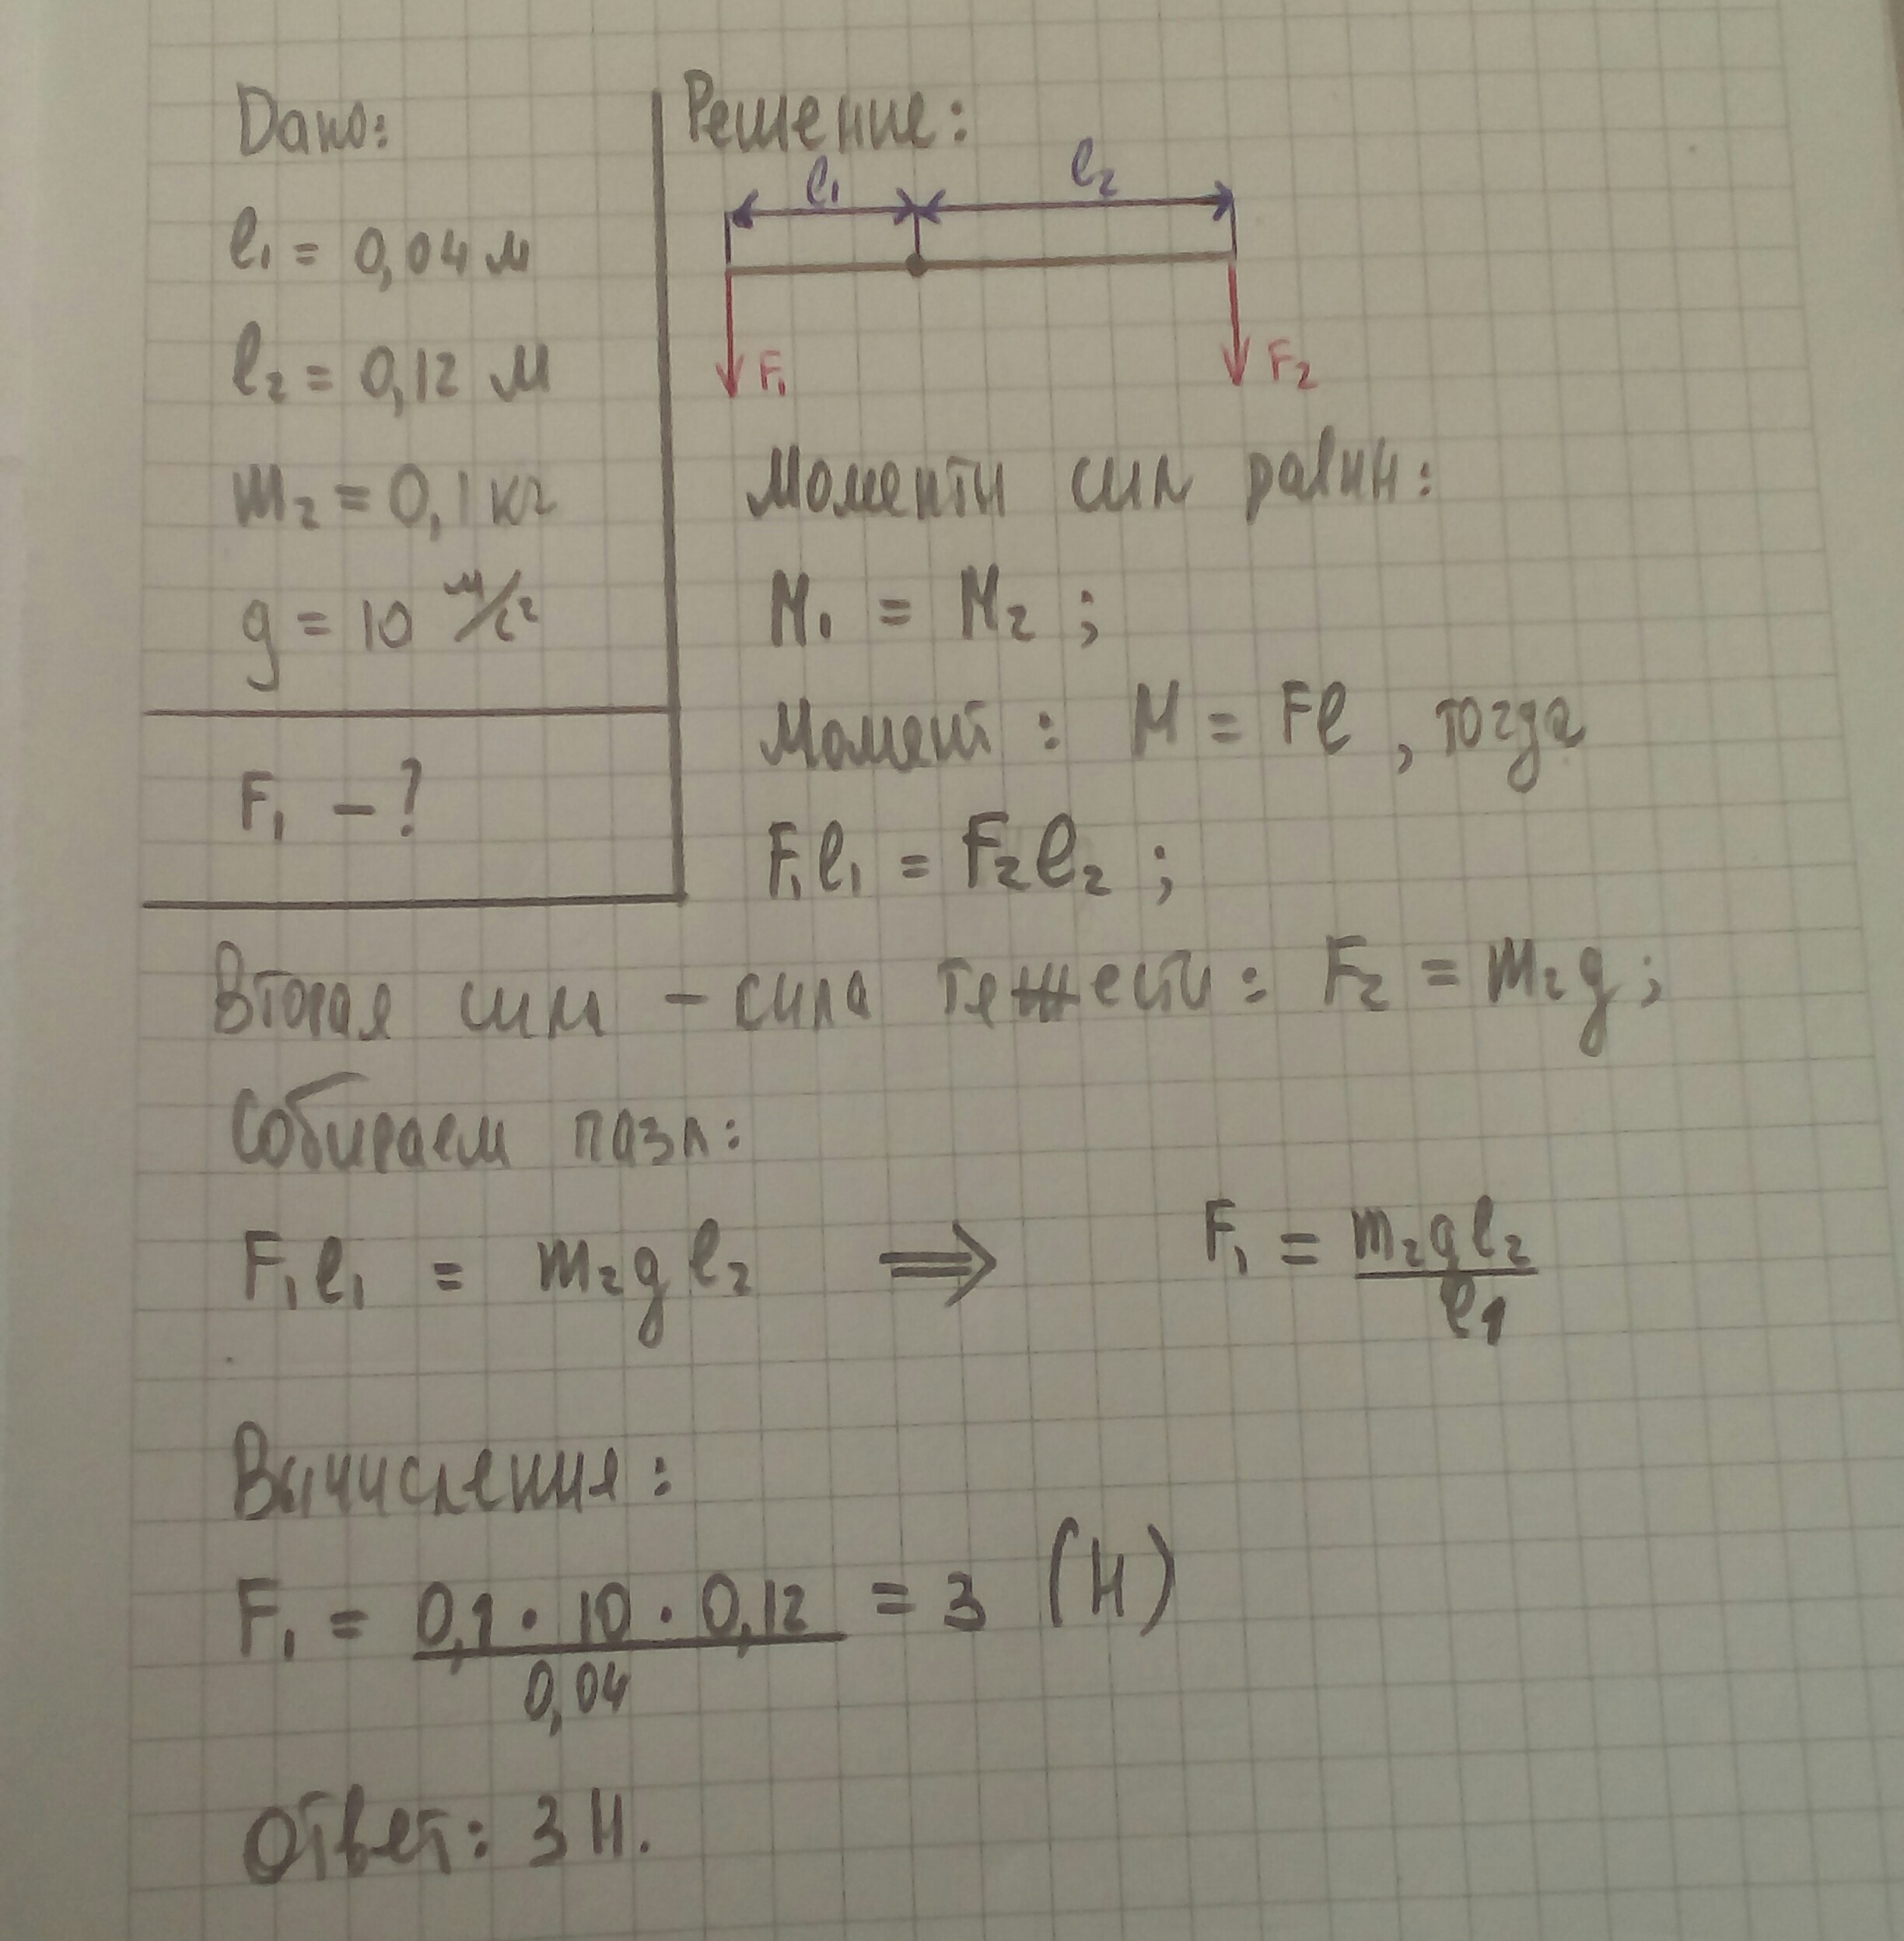 Дано:
l₁ = 0,04 м
l₂ = 0,12 м
m₂ = 0,1 кг
g = 10 м/с²
F₁ – ?
Решение:
l₁ l₂
F₁ F₂
Моменты сил равны:
M₁ = M₂ ;
Момент : M = Fl , тогда
F₁l₁ = F₂l₂ ;
Вторая сила – сила тяжести : F₂ = m₂g ;
Собираем пазл:
F₁l₁ = m₂gl₂ ⟹ F₁ = m₂gl₂ / l₁
Вычисления:
F₁ = 0,1 · 10 · 0,12 / 0,04 = 3 (Н)
Ответ: 3 Н.